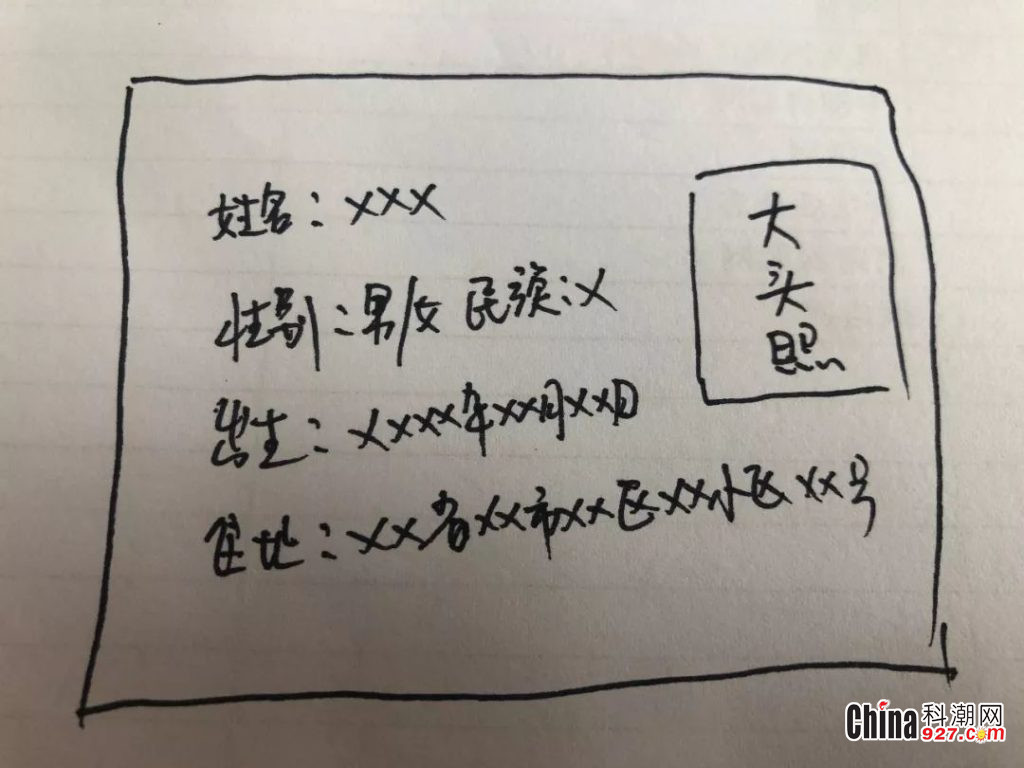 姓名：XXX
性别：男/女 民族：X
出生：XXXX年XX月XX日
住地：XX省XX市XX区XX小区XX号
大
头
照
China科潮网
927.com